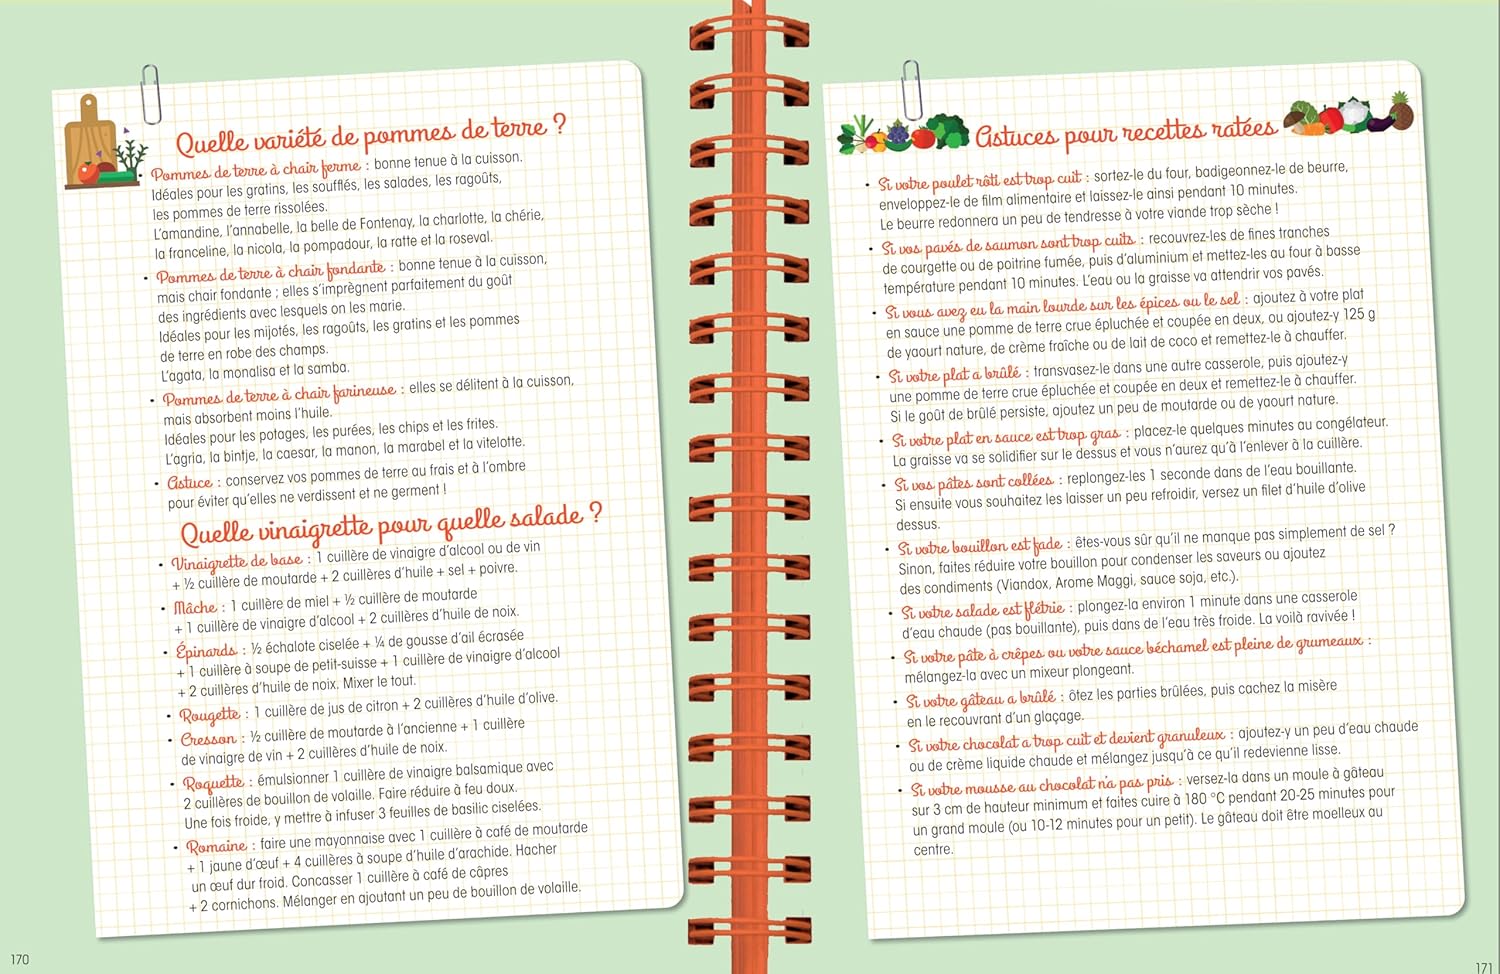 Quelle variété de pommes de terre ?
• Pommes de terre à chair ferme : bonne tenue à la cuisson.
Idéales pour les gratins, les soufflés, les salades, les ragoûts,
les pommes de terre rissolées.
L'amandine, l'annabelle, la belle de Fontenay, la charlotte, la chérie,
la franceline, la nicola, la pompadour, la ratte et la roseval.
• Pommes de terre à chair fondante : bonne tenue à la cuisson,
mais chair fondante ; elles s'imprègnent parfaitement du goût
des ingrédients avec lesquels on les marie.
Idéales pour les mijotés, les ragoûts, les gratins et les pommes
de terre en robe des champs.
L'agata, la monalisa et la samba.
• Pommes de terre à chair farineuse : elles se délitent à la cuisson,
mais absorbent moins l'huile.
Idéales pour les potages, les purées, les chips et les frites.
L'agria, la bintje, la caesar, la manon, la marabel et la vitelotte.
• Astuce : conservez vos pommes de terre au frais et à l'ombre
pour éviter qu'elles ne verdissent et ne germent !
Quelle vinaigrette pour quelle salade ?
• Vinaigrette de base : 1 cuillère de vinaigre d'alcool ou de vin
+ ½ cuillère de moutarde + 2 cuillères d'huile + sel + poivre.
• Mâche : 1 cuillère de miel + ½ cuillère de moutarde
+ 1 cuillère de vinaigre d'alcool + 2 cuillères d'huile de noix.
• Épinards : ½ échalote ciselée + ¼ de gousse d'ail écrasée
+ 1 cuillère à soupe de petit-suisse + 1 cuillère de vinaigre d'alcool
+ 2 cuillères d'huile de noix. Mixer le tout.
• Rougette : 1 cuillère de jus de citron + 2 cuillères d'huile d'olive.
• Cresson : ½ cuillère de moutarde à l'ancienne + 1 cuillère
de vinaigre de vin + 2 cuillères d'huile de noix.
• Roquette : émulsionner 1 cuillère de vinaigre balsamique avec
2 cuillères de bouillon de volaille. Faire réduire à feu doux.
Une fois froide, y mettre à infuser 3 feuilles de basilic ciselées.
• Romaine : faire une mayonnaise avec 1 cuillère à café de moutarde
+ 1 jaune d'œuf + 4 cuillères à soupe d'huile d'arachide. Hacher
un œuf dur froid. Concasser 1 cuillère à café de câpres
+ 2 cornichons. Mélanger en ajoutant un peu de bouillon de volaille.
170
Astuces pour recettes ratées
• Si votre poulet rôti est trop cuit : sortez-le du four, badigeonnez-le de beurre,
enveloppez-le de film alimentaire et laissez-le ainsi pendant 10 minutes.
Le beurre redonnera un peu de tendresse à votre viande trop sèche !
• Si vos pavés de saumon sont trop cuits : recouvrez-les de fines tranches
de courgette ou de poitrine fumée, puis d'aluminium et mettez-les au four à basse
température pendant 10 minutes. L'eau ou la graisse va attendrir vos pavés.
• Si vous avez eu la main lourde sur les épices ou le sel : ajoutez à votre plat
en sauce une pomme de terre crue épluchée et coupée en deux, ou ajoutez-y 125 g
de yaourt nature, de crème fraîche ou de lait de coco et remettez-le à chauffer.
• Si votre plat a brûlé : transvasez-le dans une autre casserole, puis ajoutez-y
une pomme de terre crue épluchée et coupée en deux et remettez-le à chauffer.
Si le goût de brûlé persiste, ajoutez un peu de moutarde ou de yaourt nature.
• Si votre plat en sauce est trop gras : placez-le quelques minutes au congélateur.
La graisse va se solidifier sur le dessus et vous n'aurez qu'à l'enlever à la cuillère.
• Si vos pâtes sont collées : replongez-les 1 seconde dans de l'eau bouillante.
Si ensuite vous souhaitez les laisser un peu refroidir, versez un filet d'huile d'olive
dessus.
• Si votre bouillon est fade : êtes-vous sûr qu'il ne manque pas simplement de sel ?
Sinon, faites réduire votre bouillon pour condenser les saveurs ou ajoutez
des condiments (Viandox, Arome Maggi, sauce soja, etc.).
• Si votre salade est flétrie : plongez-la environ 1 minute dans une casserole
d'eau chaude (pas bouillante), puis dans de l'eau très froide. La voilà ravivée !
• Si votre pâte à crêpes ou votre sauce béchamel est pleine de grumeaux :
mélangez-la avec un mixeur plongeant.
• Si votre gâteau a brûlé : ôtez les parties brûlées, puis cachez la misère
en le recouvrant d'un glaçage.
• Si votre chocolat a trop cuit et devient granuleux : ajoutez-y un peu d'eau chaude
ou de crème liquide chaude et mélangez jusqu'à ce qu'il redevienne lisse.
• Si votre mousse au chocolat n'a pas pris : versez-la dans un moule à gâteau
sur 3 cm de hauteur minimum et faites cuire à 180 °C pendant 20-25 minutes pour
un grand moule (ou 10-12 minutes pour un petit). Le gâteau doit être moelleux au
centre.
171